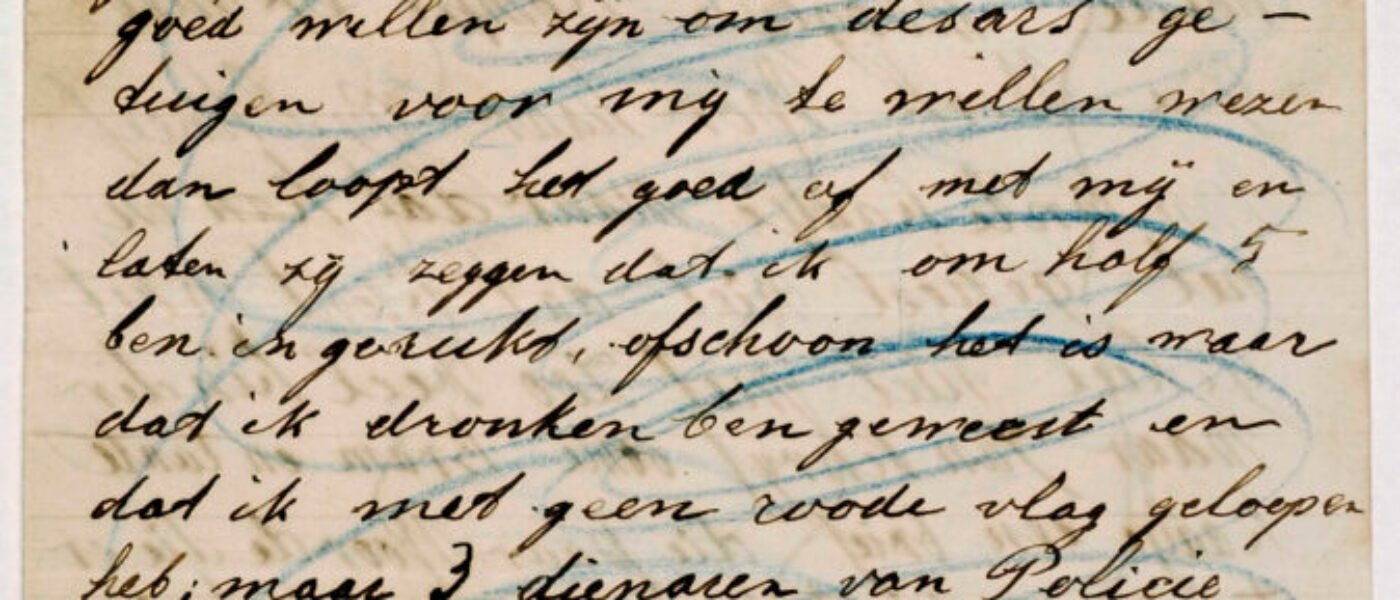 goed willen zijn om desars ge –
tuigen voor mij te willen wezen
dan loopt het goed af met mij en
laten zij zeggen dat ik om half 5
ben in gerukt, ofschoon het is waar
dat ik dronken ben geweest en
dat ik met geen roode vlag geloopen
heb; maar 3 dienaren van Policie